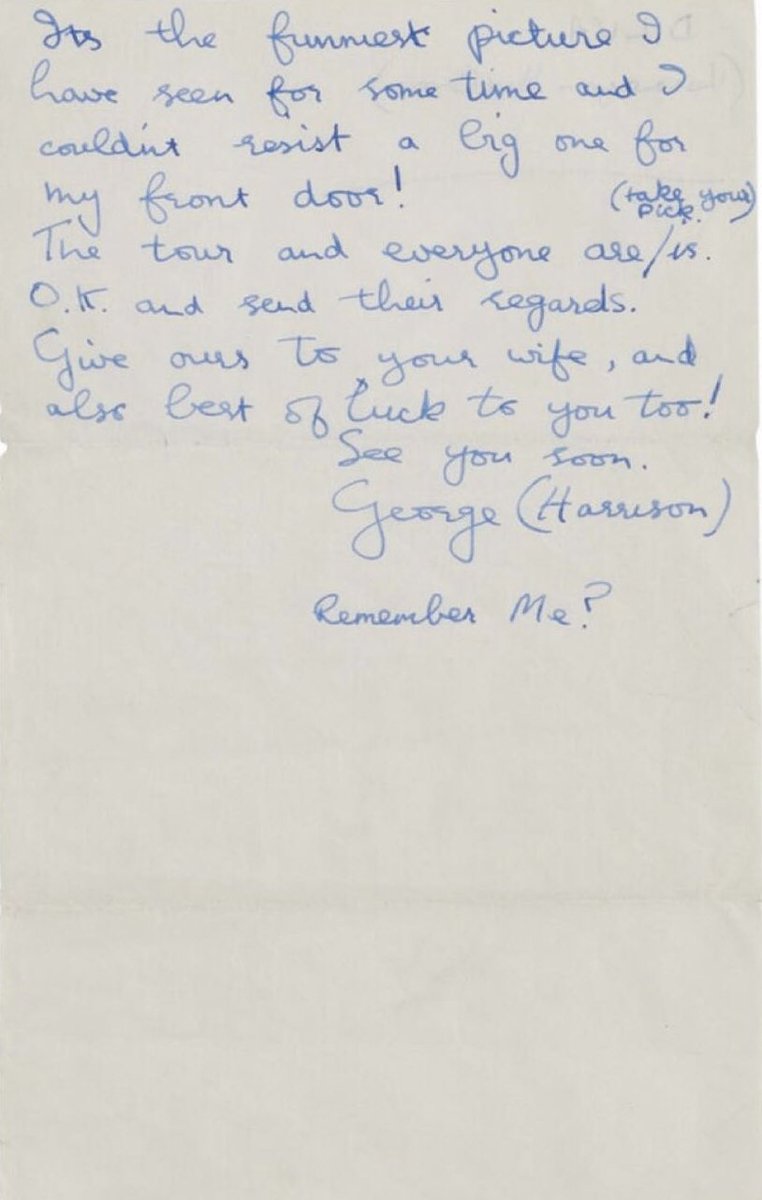 Its the funniest picture I
have seen for some time and I
couldn't resist a big one for
my front door!
(take your
pick.)
The tour and everyone are/is.
O.K. and send their regards.
Give ours to your wife, and
also best of luck to you too!
See you soon.
George (Harrison)
Remember Me?